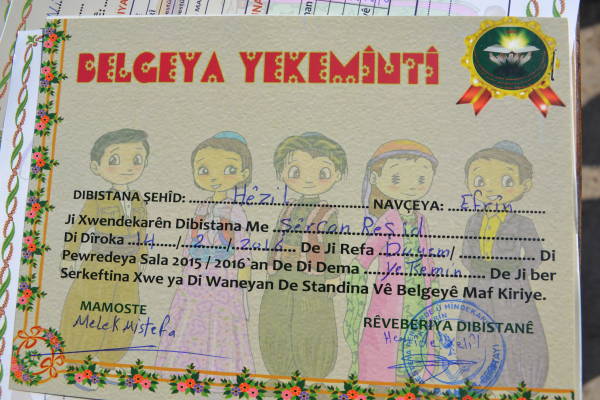 BELGEYA YEKEMÎNTÎ
DIBISTANA ŞEHÎD: ......Hêzil.................. NAVÇEYA: ...Efrîn.......
Ji Xwendekarên Dibistana Me ...Sêrcan Reşîd............................
Di Dîroka ...14....../...2..../..2016... De Ji Refa ...Duyem/................ Di
Pewredeya Sala 2015 / 2016`an De Di Dema .....Yekemin...... De Ji ber
Serkeftina Xwe ya Di Waneyan De Standina Vê Belgeyê Maf Kiriye.
MAMOSTE
Melek Mistefa
RÊVEBERIYA DIBISTANÊ